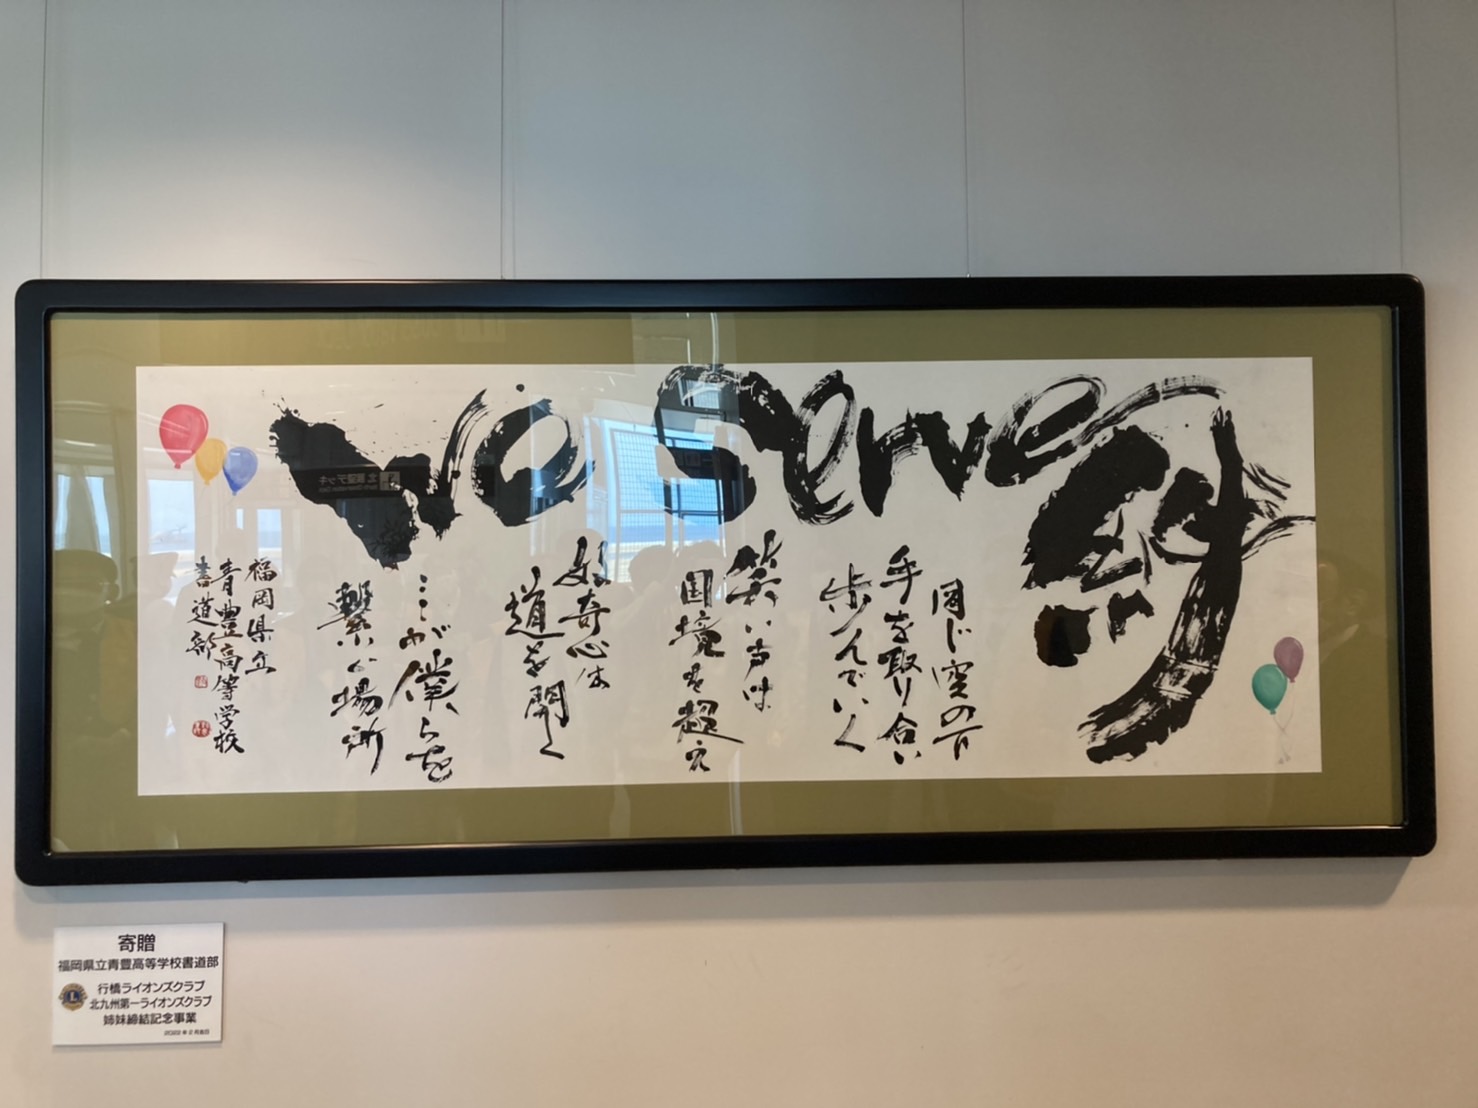 We serve
絆
同じ空の下
手を取り合い
歩んでいく
笑い声は
国境を超え
好奇心は
道を開く
ここが僕らを
繋いだ場所
福岡県立
青豊高等学校
書道部
寄贈
福岡県立青豊高等学校書道部
行橋ライオンズクラブ
北九州第一ライオンズクラブ
姉妹締結記念事業